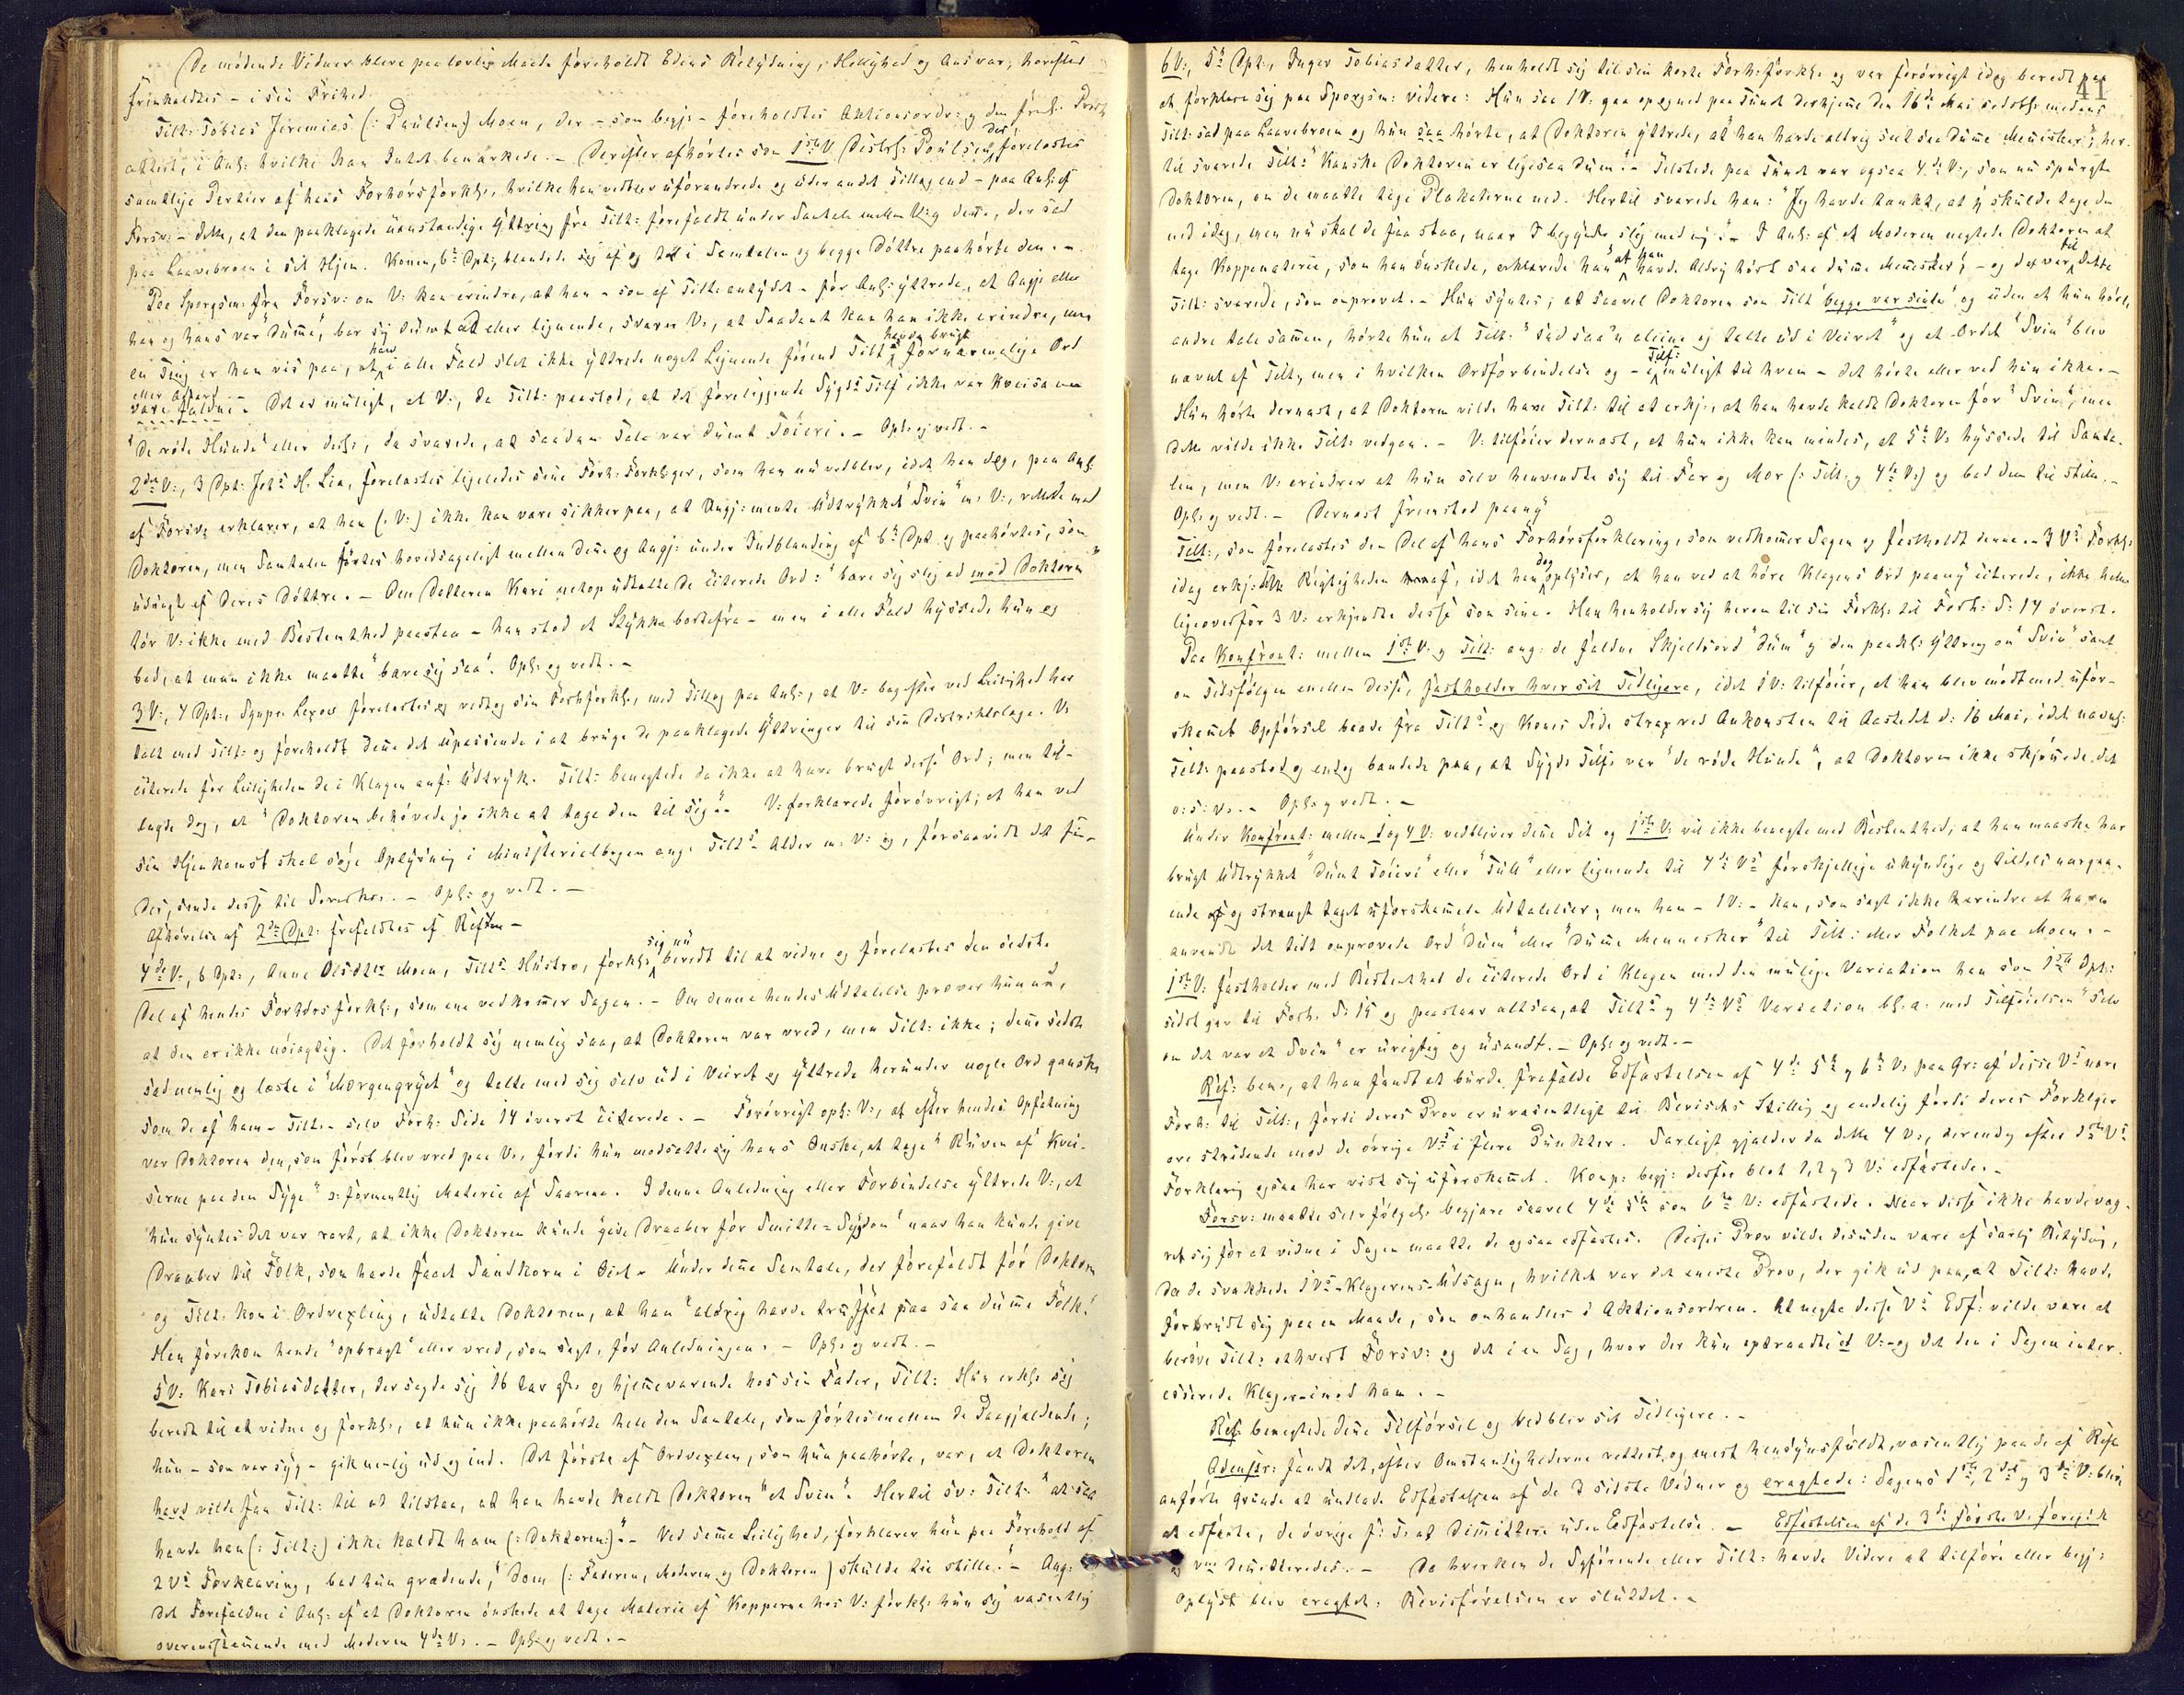 De mödende Vidner bleve paa lovlig Maade foreholdt Edens Betydning, Hellighed og Ansvar, hvorefter
frinholdtes – i sin Frihed.
Tilt: Tobias Jeremias (: Paulsen) Moen, der – som begj: – foreholdtes Aktionsordr: og den freml. Præste
attest, i Anl: hvilke han Intet bemærkede. – Derefter afhörtes som 1ste V Distrl: Poulsen, der forelæstes
samtlige Partier af hans Forhörsforkl:, hvilke han vedblev uforandrede og uden andet Tillæg end – paa Anl: af
Forsv: – dette, at den paaklagede uanstændige Yttring fra Tilt: forefaldt under Samtale mellem V: og denne, der sad
paa Laavebroen i sit Hjem. Konen, 6te Dpt:, blandede sig af og til i Samtalen og begge Döttre paahörte den. –
Paa Spörgsm: fra Forsv: om V: kan erindre, at han – som af Tilt: antydet – för Anl: yttrede, at Angj: eller
han og hans var "dumme", bar sig dumt ad eller lignende, svarer V:, at Saadant kan han ikke erindre, men
en Ting er han vis paa, at han i alle Fald slet ikke yttrede noget Lignende förend Tilts havde brugt fornærmelige Ord
eller Adfærd –
være faldne. Det er muligt, at V:, da Tilt: paastod, at det foreliggende Sygds Tilf ikke var Kveisa men
"De röde Hunde" eller desl:, da svarede, at saadan Tale var dumt Töieri. – Opl: og vedt. –
2det V:, 3 Dpt: Johs H. Lia, forelæstes ligeledes sine Forh: Forklger, som han nu vedblev, idet han dog, paa Anl:
af Forsv: erklærer, at han (: V:) ikke kan være sikker paa, at Angj: mente Udtrykket "Svin" m: V:, rettede mod
Doktoren, men Samtalen förtes hovedsageligt mellem denne og Angj: under Indblanding af 6te Dpt og paahörtes, som
udsagt af deres Döttre. – Om Datteren Kari netop udtalte De citerede Ord: "bære sig slig ad mod Doktoren"
tör V: ikke med Bestemthed paastaa – han stod et Stykke bortefra – men i alle Fald hyssede hun og
bad, at man ikke maatte "bære sig saa". Opl: og vedt. –
3 V:, 7 Dpt:, Sogpr. Lexow forelæstes og vedtog sin Forhforkl:, med Tillæg paa Anl:, at V: bagefter ved Leilighed har
talt med Tilt: og foreholdt denne det Upassende i at bruge de paaklagede Yttringer til sin Distriktslæge. V:
citerede for Leiligheden de i Klagen anf: Udtryk. Tilt: benegtede da ikke at have brugt disse Ord; men til-
lagde dog, at "Doktoren behövede jo ikke at tage dem til sig." V: forklarede forövrigt, at han ved
sin Hjemkomst skal söge Oplysning i Ministerialbogen ang: Tilts Alder m: V: og, forsaavidt det fin-
des, sende disse til Sorensk. – Opl: og vedt. –
Afhörelse af 2den Dpt: frafaldtes af Reften –
4de V:, 6 Dpt:, Anne Olsdtr Moen, Tilts Hustro, forkl: sig nu beredt til at vidne og forelæstes den övrste
Del af hendes Forhörsforkl:, som ene vedkommer Sagen. – Om denne hendes Udtalelse pröver hun nu,
at den er ikke nöiagtig. Det forholdt sig nemlig saa, at Doktoren var vred, men Tilt: ikke; denne sidste
sad nemlig og læste i "Morgengryet" og talte med sig selv ud i Veiret og yttrede herunder nogle Ord ganske
som de af ham – Tilt. – selv Forh: Side 14 överst citerede. – Forövrigt opl: V:, at efter hendes Opfatning
var Doktoren den, som först blev vred paa V:, fordi hun modsatte sig hans Önske, at tage "Ruven af Kvei-
serne paa den Syge" ɔ: formentlig Materie af Saarene. I denne Anledning eller Forbindelse yttrede V:, at
hun syntes det var rart, at ikke Doktoren kunde "give Draaber for Smitte=Sygdom" naar han kunde give
Draaber til Folk, som havde faaet Sandkorn i Öiet. Under denne Samtale, der forefaldt för Doktoren
og Tilt: kom i Ordvexling, udtalte Doktoren, at han "aldrig havde truffet paa saa dumme Folk."
Han forekom hende "opbragt" eller vred, som sagt, för Anledningen. – Opl: og vedt. –
5 V: Kari Tobiasdatter, der sagde sig 16 Aar gl: og hjemmeværende hos sin Fader, Tilt: Hun erkl: sig
beredt til at vidne og forkl:, at hun ikke paahörte hele den Samtale, som förtes mellem de Paagjældende;
hun – som var syg – gik nemlig ud og ind. Det förste af Ordvexlen, som hun paahörte, var, at Doktoren
havd vilde faa Tilt: til at tilstaa, at han havde kaldt Doktoren "et Svin". Hertil sv: Tilt: "at saa
havde han (: Tilt:) ikke kaldt ham (: Doktoren:)" – Ved denne Leilighed, forklarer hun paa Forehold af
2 Vs Forklaring, bad hun grædende, "Dem (: Faderen, Moderen og Doktoren) skulde tie stille." – Ang:
det Forefaldne i Anl: af at Doktoren önskede at tage Materie af Kopperne hos V: forkl: hun sig væsentlig
overensstemmende med Moderen 4de V:. – Opl: og vedt. –
41
6 V:, 5te Dpt:, Inger Tobiasdatter, henholdt sig til sin korte Forh: forkl: og var forövrigt idag beredt paa
at forklare sig paa Spörgsm: videre: Hun saa 1 V: gaa op og ned paa Tunet derhjemme den 16de Mai sidstl: medens
Tilt: sad paa Laavebroen og hun saa hörte, at Doktoren yttrede, at "han havde aldrig seet saa dumme Menesker"; her-
til svarede Tilt: "Kanske Doktoren er ligesaa dum." – Tilstede paa Tunet var ogsaa 4de V:, som nu spurgte
Doktoren, om de maatte tage Plakaterne ned. Hertil svarede han: "Jeg havde tænkt, at I skulde tage dem
ned idag, men nu skal de faa staa, naar I begynder slig med mig." – I Anl: af at Moderen negtede Doktoren at
tage Koppematerie, som han önskede, erklærede han "at han havde Aldrig hört saa dumme Menesker"; – og det var til dette
Tilt: svarede, som omprövet. – Hun syntes, at saavel Doktoren som Tilt "begge var sinte" og uden at hun hörte
andre tale sammen, hörte hun at Tilt: "sad saa'n aleine og talte ud i Veiret" og at Ordet "Svin" blev
nævnt af Tilt:, men i hvilken Ordforbindelse og – i Tilf: muligt til hvem – det hörte eller ved hun ikke. –
Hun hörte dernæst, at Doktoren vilde have Tilt: til at erkj:, at han havde kaldt Doktoren for "Svin", men
dette vilde ikke Tilt: vedgaa. – V: tilföier dernæst, at hun ikke kan mindes, at 5te V: hyssede til Samta-
len, men V: erindrer at hun selv henvendte sig til Far og Mor (: Tilt: og 4de V:) og bad dem tie stille. –
Opl: og vedt. – Dernæst fremstod paany
Tilt:, som forelæstes den Del af hans Forhörsforklaring, som vedkommer Sagen og fastholdt denne. 3 Vs Forkl:
idag erkj: dette Rigtigheden af, idet han dog oplyser, at han ved at höre Klagens Ord paany citerede, ikke heller
ligeoverfor 3 V: erkjendte disse som sine. Han henholder sig herom til sin Forkl: til Forh: S: 14 överst.
Paa Konfront: mellem 1ste V: og Tilt: ang: de faldne Skjeldsord "Dum" og den paakl: Yttring om "Svin" samt
om Tidsfölgen mellem disse, fastholder hver sit Tidligere, idet 1 V: tilföier, at han blev mödt med ufor-
skammet Opförsel baade fra Tilts og Kones Side strax ved Ankomsten til Aastedet d: 16 Mai, idet navnl:
Tilt: paastod og endog bandede paa, at Sygds Tilf: var "de röde Hunde", at Doktoren ikke skjönnede det
o: s: v:. – Opl: og vedt. –
Under Konfront: mellem 1 og 4 V: vedbliver denne Sit og 1ste V: vil ikke benegte med Bestemthed, at han maaske har
brugt Udtrykket "Dumt Töieri" eller "Tull" eller lignende til 4de Vs forskjellige ukyndige og tildels nærgaa-
ende og strængt taget uforskamede Udtalelser, men han – 1 V: – kan, som sagt ikke erindre at have
anvendt det tidt omprövede Ord "Dum" eller "Dumme Mennesker" til Tilt: eller Folket paa Moen. –
1ste V: fastholder med Bestemthed de citerede Ord i Klagen med den mulige Variation han som 1ste Dpt:
sidst gav til Forh. S: 15 og paastaar altsaa, at Tilts og 4de Vs Variation bl. a. med Tilföielsen "selv
om det var et Svin" er urigtig og usandt. – Opl: og vedt. –
Ref: bem:, at han fandt at burde frafalde Edfæstelsen af 4de 5te og 6te V: paa Gr: af disse Vs nære
Forh: til Tilt:, fordi deres Prov er uvæsentligt til Bevisets Stilling og endelig fordi deres Forklger
ere stridende mod de övrige Vs i flere Punkter. Særligt gjælder da dette 4 V:, derendog efter 1ste Vs
Forklaring ogsaa har vist sig uforskammet. Komp: begj: derfor blot 1, 2 og 3 V: edfæstede. –
Forsv: maatte selvfölgel: begjære saavel 4de 5te som 6te V: edfæstede. Naar disse ikke havde væg-
ret sig for at vidne i Sagen maatte de ogsaa edfæstes. Disses Prov vilde desuden være af særlig Betydning,
da de svækkede 1 Vs – Klagerens – Udsagn, hvilket var det eneste Prov, der gik ud paa, at Tilt: havde
forbrudt sig paa en Maade, som omhandles i Aktionsordren. At negte disse Vs Edf: vilde være at
beröve Tilt: ethvert Forsv: og det i en Sag, hvor der kun optraadte et V: – og det den i Sagen inter-
esserede Klager – imod ham. –
Ref: benegtede denne Tilförsel og vedblev sit Tidligere. –
Adminstr: fandt det, efter Omstændighederne rettest og mest hensynsfuldt, væsentlig paa de af Ref:
anförte Grunde at undlade Edfæstelsen af de 3 sidste Vidner og eragtede: Sagens 1ste, 2det og 3de V: blir
at edfæste, de övrige f: T: at Dimittere uden Edfæstelse. – Edfæstelsen af de 3de förste V: foregik
og Vne Demitteredes. – Da hverken de Sagförende eller Tilt: havde Videre at tilföie eller begj:
Oplyst blev eragtet: Bevisförelsen er sluttet. –